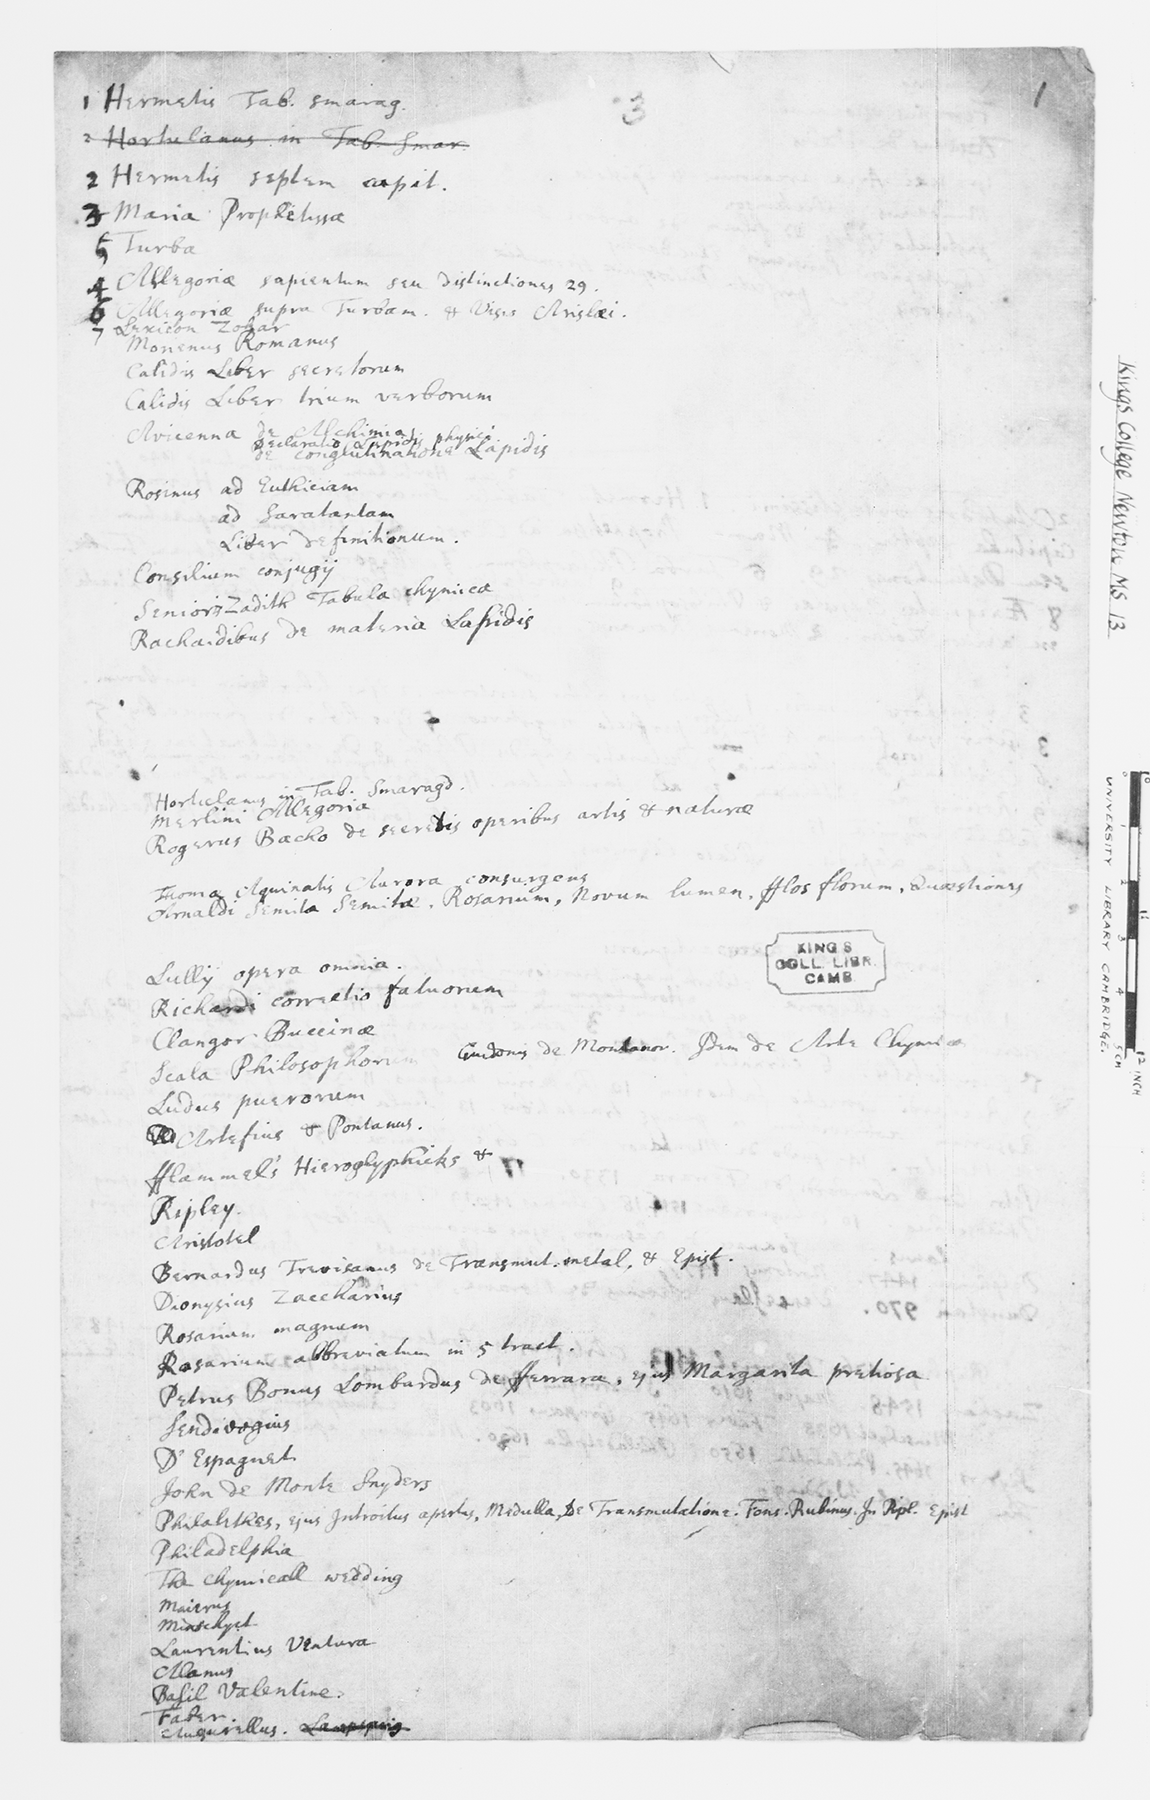 3
1
1 Hermetis Tab. smarag.
2 Hortulanus in Tab. Smar.
2 Hermetis septem capit.
3 Maria Prophetissa
5 Turba
4 Allegoriæ sapientum seu distinctiones 29.
6 Allegoriæ supra Turbam. & Visio Arislæi.
7 Lexicon Zohar
Morienus Romanus
Calidis Liber secretorum
Calidis Liber trium verborum
Avicenna de Alchimia
Declaratio Lapidis physici
de conglutinatione Lapidis
Rosinus ad Euthiciam
ad Saratantam
Liber definitionum.
Consilium conjugij
Senioris Zadith Tabula chymica
Rachaidibus de materia Lapidis
Hortulanus in Tab. Smaragd.
Merlini Allegoria
Rogerus Bacho de secretis operibus artis & naturæ
Thomæ Aquinatis Aurora consurgens
Arnaldi Semita Semitæ. Rosarium, Novum lumen, fflos florum, Quæstiones
KING'S
COLL. LIBR.
CAMB
Lullij opera omnia.
Richardi correctio fatuorum
Clangor Buccinæ
Scala Philosophorum Guidonis de Montanor. Idem de Arte Chymica
Ludus puerorum
Artefius & Pontanus.
fflammel's Hieroglyphicks &
Ripley.
Aristotel
Bernardus Trevisanus de Transmut. metal, & Epist.
Dionysius Zaccharius
Rosarium magnum
Rosarium abbreviatum in 5 tract.
Petrus Bonus Lombardus de fferrara, ejus Margarita pretiosa
Sendivogius
D'Espagnet
John de Monte Snyders
Philalethes, ejus Introitus apertus, Medulla, De Transmutatione. Fons. Rubinus. In Ripl. Epist
Philadelphia
The Chymicall wedding
Maierus
Minschyct
Laurentius Ventura
Alanus
Basil Valentine.
Faber.
Augurellus. Lampspring
Kings College Newton MS 13
UNIVERSITY LIBRARY CAMBRIDGE.